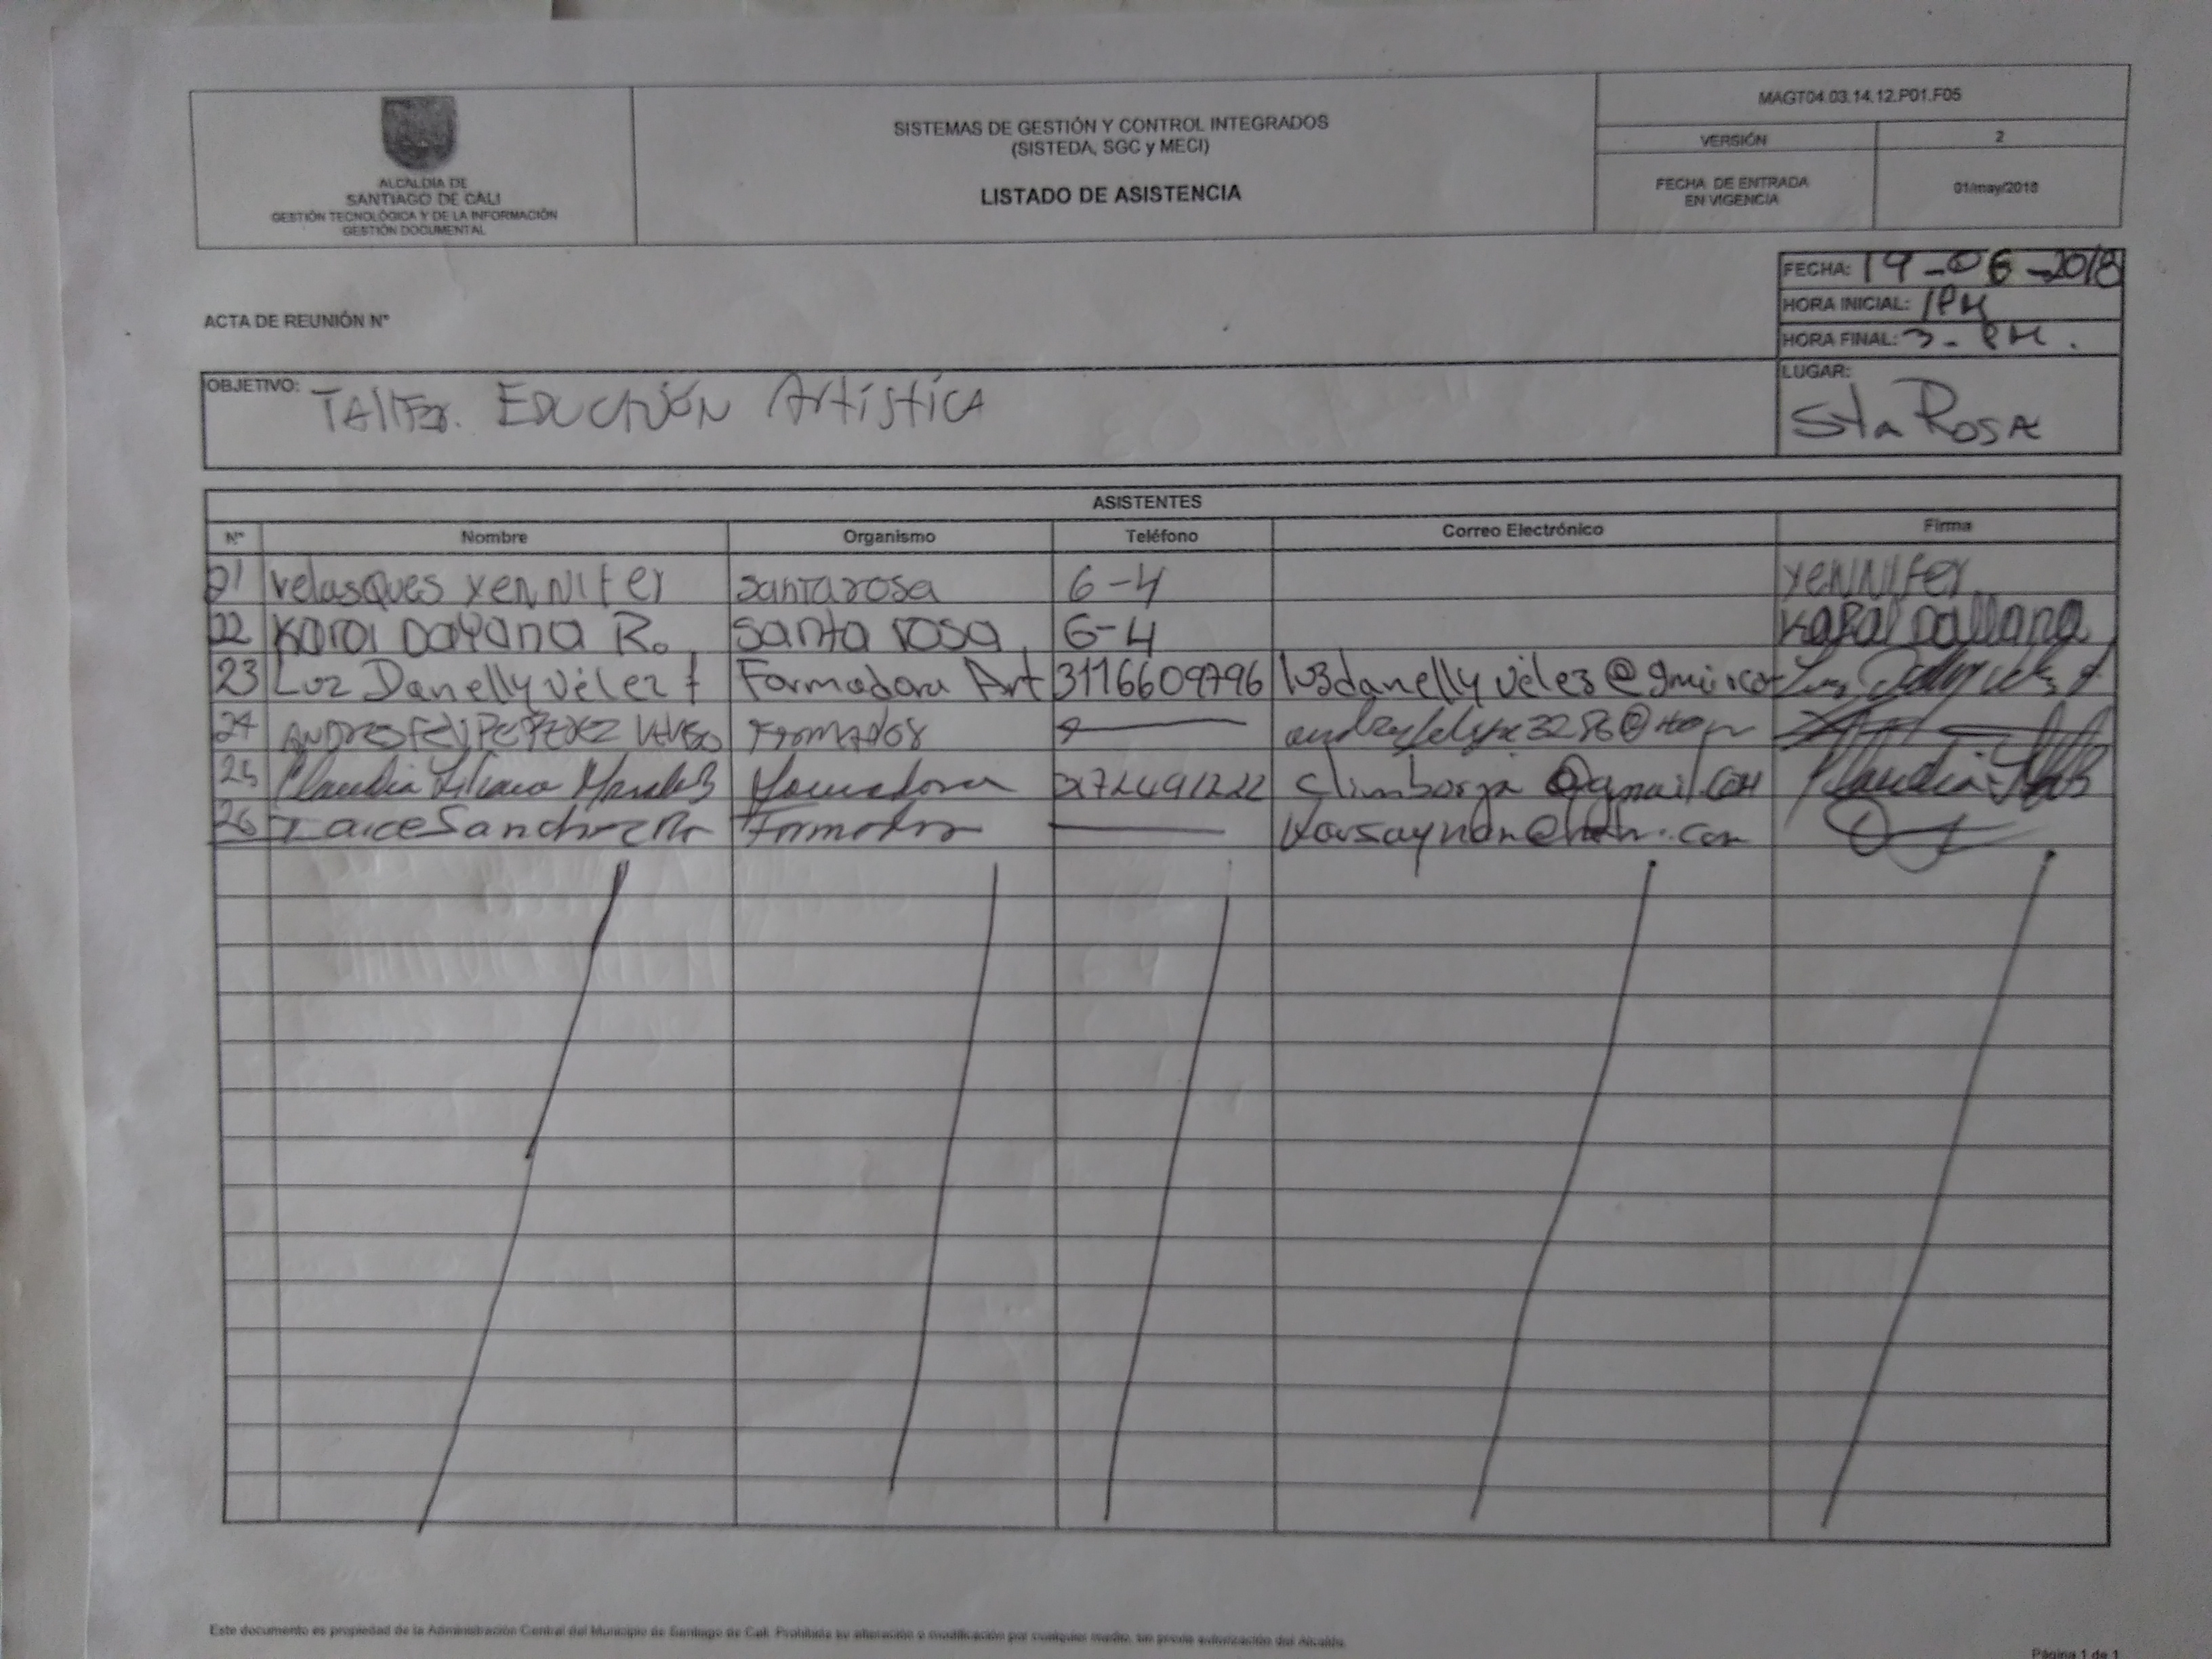 ALCALDÍA DE
SANTIAGO DE CALI
GESTIÓN TECNOLÓGICA Y DE LA INFORMACIÓN
GESTIÓN DOCUMENTAL
SISTEMAS DE GESTIÓN Y CONTROL INTEGRADOS
(SISTEDA, SGC y MECI)
LISTADO DE ASISTENCIA
MAGT04.03.14.12.P01.F05
VERSIÓN 2
FECHA DE ENTRADA
EN VIGENCIA 01/may/2018
FECHA: 19-06-2018
HORA INICIAL: 1PM
ACTA DE REUNIÓN N°
HORA FINAL: 3-PM.
OBJETIVO: Educción Artística
LUGAR:
Sta Rosa
ASISTENTES
N° Nombre Organismo Teléfono Correo Electrónico Firma
21 Velasques Yennifer santarosa 6-4 Yennifer
22 Karol Dayana R. santa rosa 6-4 Karal Dallana
23 Luz Danelly Vélez Formadora Art 3116609796
24 Formador
25 Claudia Liliana Formadora @gmail.com
26 Formador
Este documento es propiedad de la Administración Central del Municipio de Santiago de Cali. Prohibida su alteración o modificación por cualquier medio, sin previa autorización del Alcalde.
Página 1 de 1